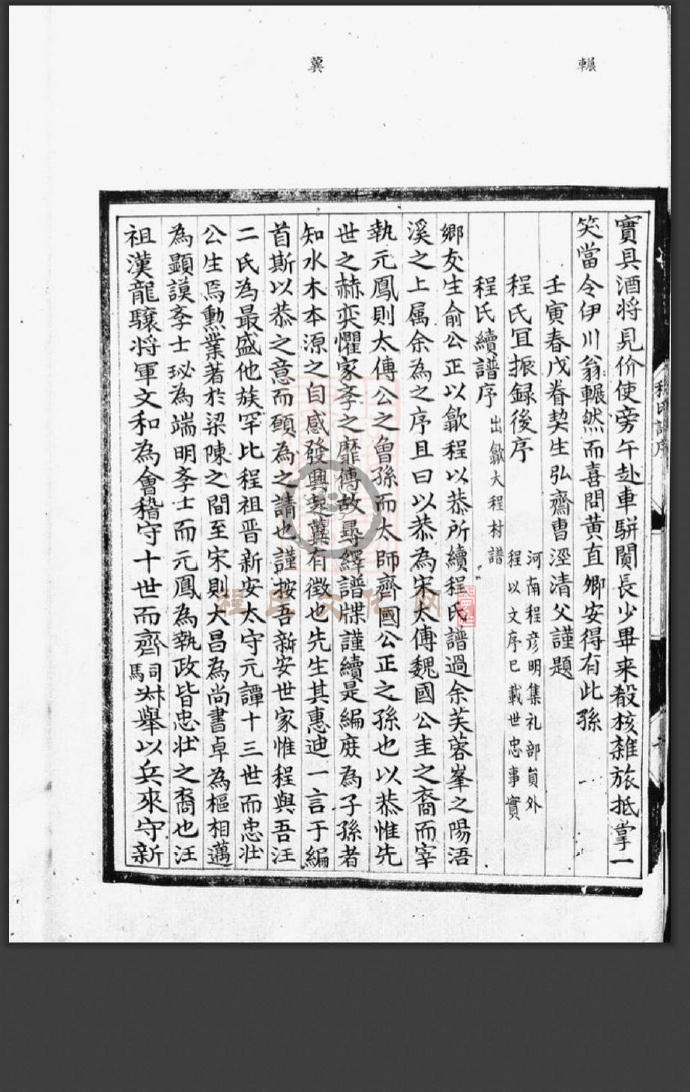 輾
冀
賓具酒將見价使旁午赴車駢闐長少畢来殽核雜旅抵掌一
笑當令伊川翁輾然而喜問黄直卿安得有此孫
壬寅春戊眷契生弘齋曺涇清父謹題
程氏冝振録後序
河南程彦明集礼部負外
程以文序已載世忠事實
程氏續譜序
出歙大程村譜
鄉友生俞公正以歙程以恭所續程氏譜過余芙蓉峯之陽浯
溪之上属余為之序且曰以恭為宋太傳魏國公圭之裔而宰
執元鳳則太傅公之曾孫而太師齊國公正之孫也以恭惟先
世之赫奕懼家孝之靡傳故尋繹譜牒謹續是編庻為子孫者
知水木本源之自感發興起冀有徴也先生其惠迪一言于編
首斯以恭之意而頋為之請也謹按吾新安世家惟程與吾汪
二氏為最盛他族罕比程祖晋新安太守元譚十三世而忠壮
公生焉勲業著於梁陳之間至宋則大昌為尚書卓為樞相邁
為顯謨孝士珌為端明孝士而元鳳為執政皆忠壮之裔也汪
祖漢龍驤將軍文和為會稽守十世而齊司馬尌舉以兵來守新
程氏譜序
程氏文化网